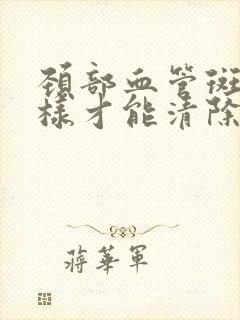 頚部血管斑
樣才能清除
蔣華軍